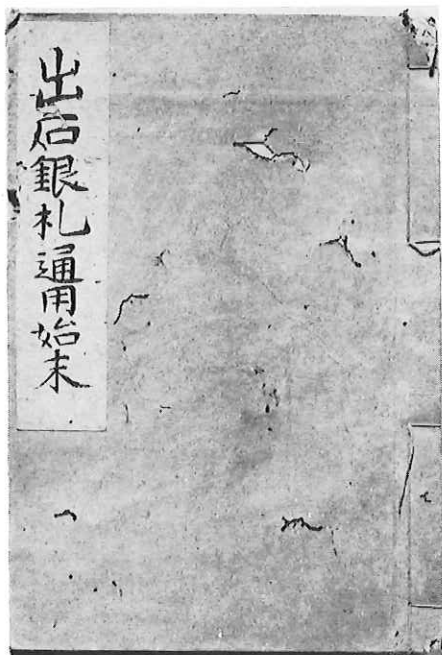 出石銀札通用始末